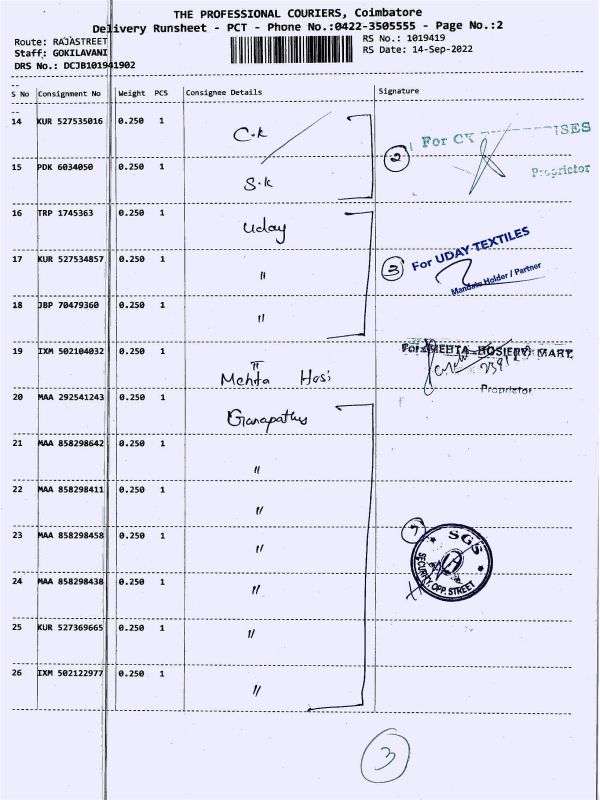 THE PROFESSIONAL COURIERS, Coimbatore
Delivery Runsheet - PCT - Phone No.:0422-3505555 - Page No.:2
Route: RAJASTREET
RS No.: 1019419
Staff: GOKILAVANI
RS Date: 14-Sep-2022
DRS No.: DCJB101941902
S No Consignment No Weight PCS Consignee Details Signature
14 KUR 527535016 0.250 1 C.k
② For CK ISES
Proprietor
15 PDK 6034050 0.250 1 S.k
16 TRP 1745363 0.250 1 Uday
17 KUR 527534857 0.250 1 〃
③ For UDAY TEXTILES
Mandate Holder / Partner
18 JBP 70479360 0.250 1 〃
19 IXM 502104032 0.250 1 Mehta Hosi
For MEHTA HOSIERY MART
Proprietor
20 MAA 292541243 0.250 1 Ganapathy
21 MAA 858298642 0.250 1 〃
22 MAA 858298411 0.250 1 〃
23 MAA 858298458 0.250 1 〃
⑦ SGS
SECURITY, OPP. STREET
24 MAA 858298438 0.250 1 〃
25 KUR 527369665 0.250 1 〃
26 IXM 502122977 0.250 1 〃
③